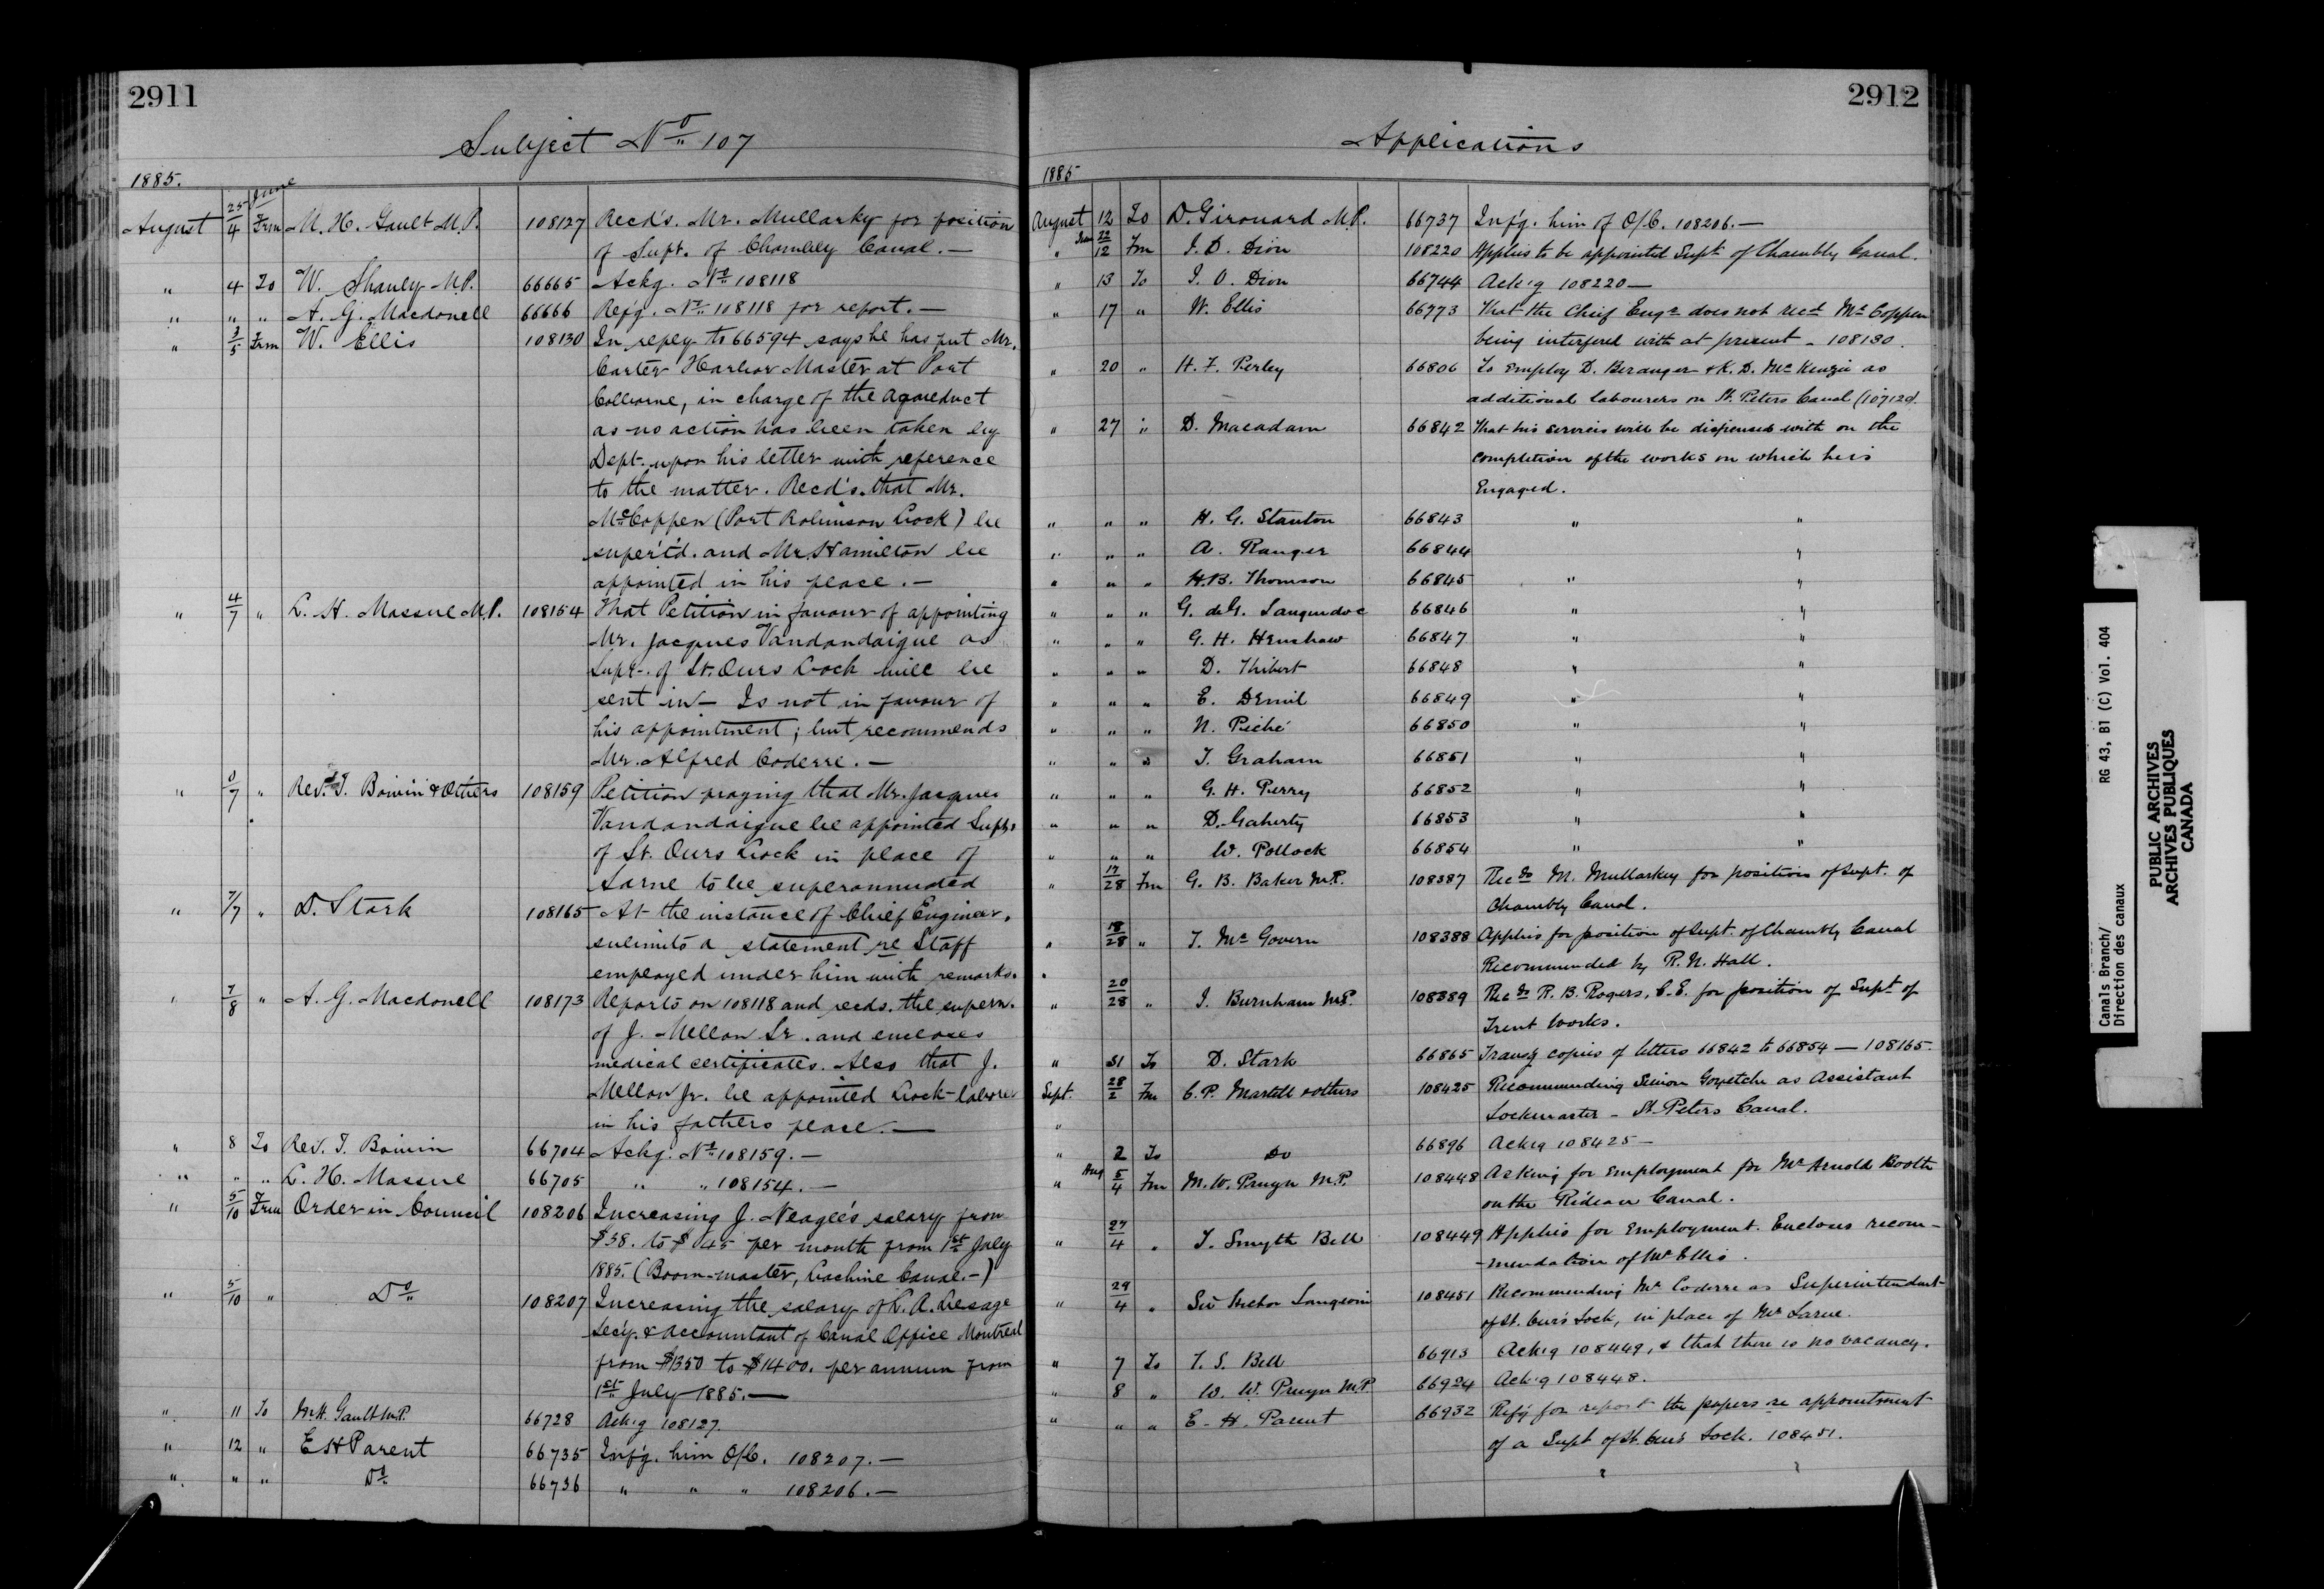 2911
Subject No 107
1885.
August 25/4 June Frm M. H. Gault M.P. 108127 Recd's. Mr. Mullarky for position
of Supt. of Chambly Canal.—
" 4 To W. Shanly M.P. 66665 Ackg. No 108118
" " " A. G. Macdonell 66666 Refg. No 108118 for report.—
" 3/5 Frm W. Ellis 108130 In reply to 66594 says he has put Mr.
Carter Harbor Master at Port
Colborne, in charge of the aqueduct
as no action has been taken by
Dept. upon his letter with reference
to the matter. Recd's. that Mr.
McCoppen (Port Robinson Lock) be
super'td. and Mr. Hamilton be
appointed in his place.—
" 4/7 " L. H. Massue M.P. 108154 That Petition in favour of appointing
Mr. Jacques Vandandaigue as
Supt. of St. Ours Lock will be
sent in— Is not in favour of
his appointment; but recommends
Mr. Alfred Coderre.—
" /7 " Rev. T. Boivin & Others 108159 Petition praying that Mr. Jacques
Vandandaigue be appointed Supt.
of St. Ours Lock in place of
Larue to be superannuated
" 7/7 " D. Stark 108165 At the instance of Chief Engineer,
submits a statement re Staff
employed under him with remarks.
" 7/8 " A. G. Macdonell 108173 Reports on 108118 and recds. the supern.
of J. Mellon Sr. and encloses
medical certificates. Also that J.
Mellon Jr. be appointed Lock-laborer
in his fathers place.—
" 8 To Rev. T. Boivin 66704 Ackg. No 108159.—
" " " L. H. Massue 66705 " " 108154.—
" 5/10 Frm Order in Council 108206 Increasing J. Neagle's salary from
$38. to $45 per month from 1st July
1885. (Boom-master, Lachine Canal.—)
" 5/10 " Do 108207 Increasing the salary of L. A. Lesage
Secy. & Accountant of Canal Office Montreal
from $1350 to $1400. per annum from
1st July 1885.—
" 11 To M.H. Gault M.P. 66728 Ack'g 108127.
" 12 " E H Parent 66735 Inf'g. him O/C. 108207.—
" " " Do 66736 " " " 108206.—
2912
Applications
1885
August 12 To D. Girouard M.P. 66737 Inf'g. him of O/C. 108206.—
" 22/12 Fm J. D. Dion 108220 Applies to be appointed Supt of Chambly Canal.
" 13 To J. O. Dion 66744 Ack'g 108220—
" 17 " W. Ellis 66773 That the Chief Engr does not recd McCoppen
being interfered with at present - 108130.
" 20 " H. F. Perley 66806 To employ D. Beranger & K. D. McKenzie as
additional labourers on St. Peters Canal (107120).
" 27 " D. Macadam 66842 That his services will be dispensed with on the
completion of the works on which he is
Engaged.
" " " H. G. Stanton 66843 " "
" " " A. Ranger 66844 "
" " " H.B. Thomson 66845 " "
" " " G. de G. Languedoc 66846 " "
" " " G. H. Henshaw 66847 " "
" " " D. Thibert 66848 " "
" " " E. Demil 66849 " "
" " " N. Piché 66850 " "
" " " T. Graham 66851 " "
" " " G. H. Perry 66852 " "
" " " D. Gaherty 66853 " "
" " " W. Pollock 66854 " "
" 17/28 Fm G. B. Baker M.P. 108387 Recds M. Mullarkey for position of Supt. of
Chambly Canal.
" 18/28 " T. McGovern 108388 Applies for position of Supt. of Chambly Canal
Recommended by R. N. Hall.
" 20/28 " J. Burnham M.P. 108389 Recds R. B. Rogers, C.E. for position of Supt of
Trent Works.
" 31 To D. Stark 66865 Transg copies of letters 66842 to 66854 — 108165.
Sept. 28/2 Fm C. P. Martell & others 108425 Recommending Simon Goyetche as Assistant
Lockmaster - St. Peters Canal.
" 2 To Do 66896 Ack'g 108425—
" Aug 5/4 Fm M. W. Pruyn M.P. 108448 Asking for Employment for Mr Arnold Booth
on the Rideau Canal.
" 27/4 " T. Smyth Bell 108449 Applies for Employment. Encloses recom-
-mendation of Mr Ellis.
" 29/4 " Sir Hector Langevin 108451 Recommending Mr Coderre as Superintendent
of St. Ours Lock, in place of Mr Larue.
" 7 To T. S. Bell 66913 Ack'g 108449, & that there is no vacancy.
" 8 " W. W. Pruyn M.P. 66924 Ack'g 108448.
" " " E. H. Parent 66932 Ref'g for report the papers re appointment
of a Supt of St. Ours Lock. 108451.
Canals Branch/ RG 43, B1 (C) Vol. 404
Direction des canaux
PUBLIC ARCHIVES
ARCHIVES PUBLIQUES
CANADA